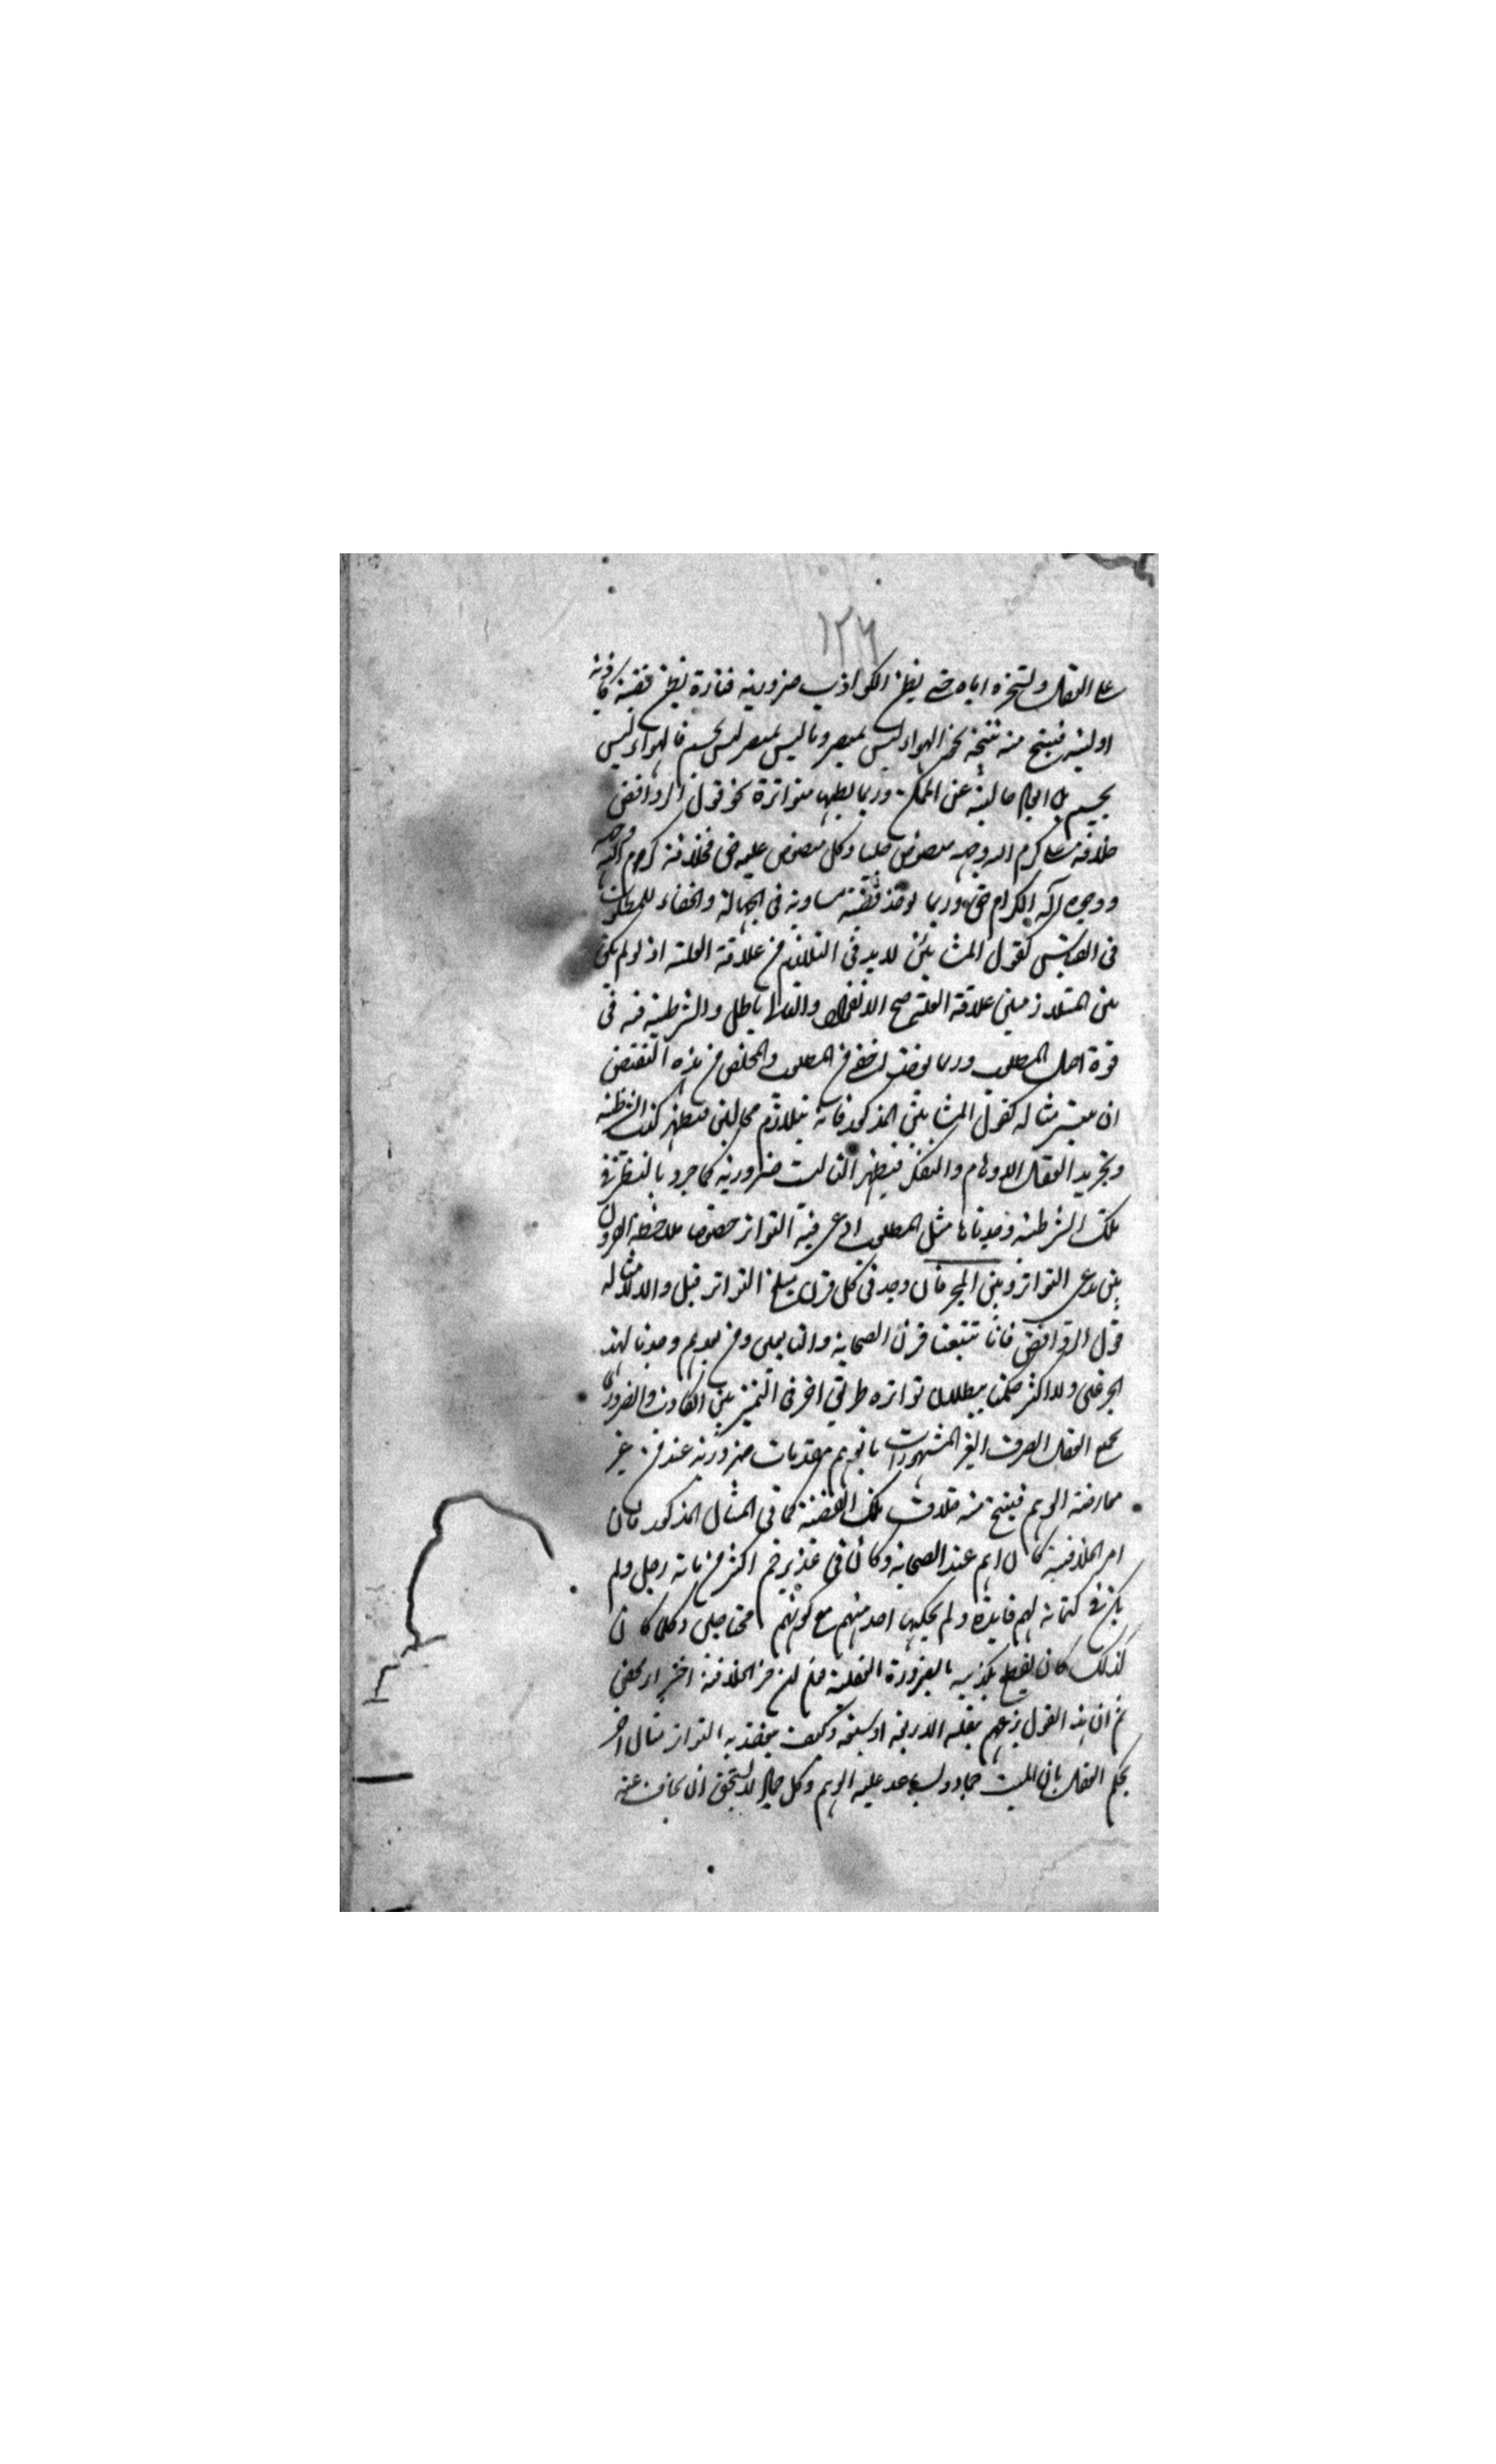 ١٢٦
على العقل وتسخره اياه حتى يظن الكواذب ضرورية فتارة يظن قضية كاذبة
اولية فينتج منه نتيجة نحو الهواء ليس بمبصر وما ليس بمبصر ليس بجسم فالهواء ليس
بجسم بل خالية عن وربما يظنها متواترة نحو قول الروافض
خلافة على كرم الله وجهه منصوص عليها وكل منصوص عليه حق فخلافة كرم الله وجهه
ووجوه آله الكرام حق وربما يوخذ قضية مساوية فى الجهالة والخفاء للمطلوب
فى القياس كقول المشائين لا بد فى التلازم من علاقة العلية اذ لو لم يكن
بين المتلازمين علاقة العلية صح الانفكاك والتالى باطل والشرطية فيه فى
قوة اصل المطلوب وربما يوخذ اخفى من المطلوب والمخلص من هذه النقيض
ان مثاله كقول المشائين المذكور فانه
وتجريد العقل الاوهام والتفكر ليست ضرورية كما جرد بالنظر فى
تلك الشرطية وجدناها مثل المطلوب ادعى فيه التواتر خصوصا ملاحظة القرون
بين مدعى التواتر وبين المخبر فان وجد فى كل قرن مبلغ التواتر قبل والا لا مثاله
قول الروافض فانا تتبعنا قرن الصحابة والتابعين ومن بعدهم وجدنا لهذا
ولا اكثر حكمنا ببطلان تواتره طريق اخر فى التمييز بين الكاذب والضرورى
العقل الصرف الغير المشهورات مقدمات ضرورية عنده من غير
معارضة الوهم فينتج منه خلاف تلك القضية كما فى المثال المذكور فان
امر الخلافة كان اهم عند الصحابة وكان فى غدير خم اكثر من مائة رجل ولم
يكن فى كتمانه لهم فايدة ولم يحكيها احد منهم مع كونهم محتاجين وكلما كان
كذلك كان يقطع بكذبه بالضرورة العقلية
ثم ان هذا القول بزعمهم نقله الاربعة او سبعة وكيف ينعقد به التواتر مثال اخر
يحكم العقل بان الميت جماد وليساعد عليه الوهم وكل جماد لا يستحق ان يخاف عنه